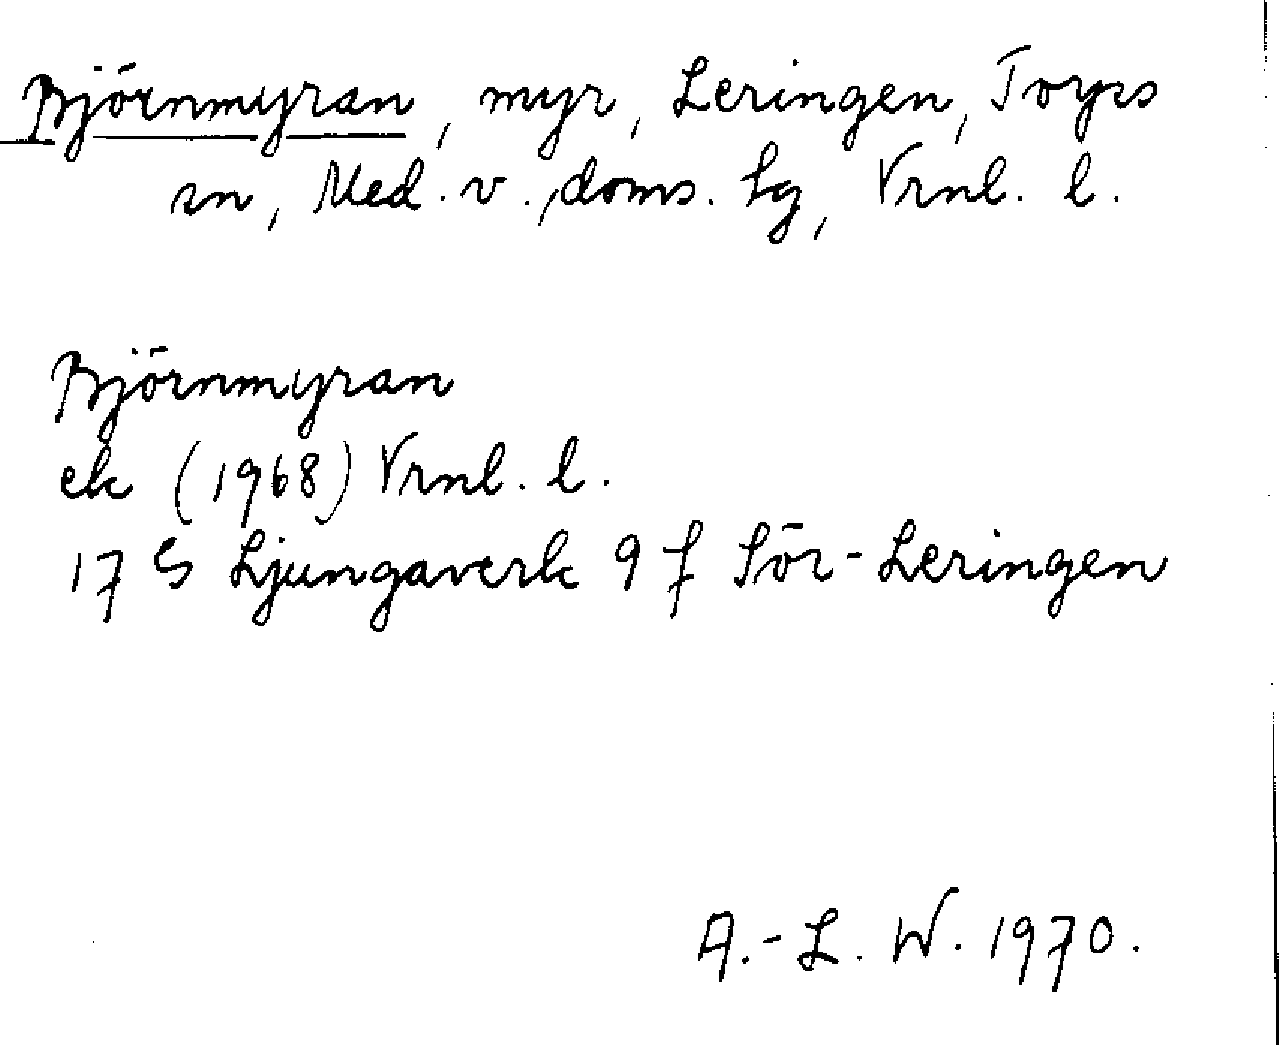 Björnmyran, myr, Leringen, Torps
sn, Med. v., doms. lg, Vrnl. l.
Björnmyran
ek (1968) Vrnl. l.
17 G Ljungaverk 9 f Sör-Leringen
A.-L. W. 1970.